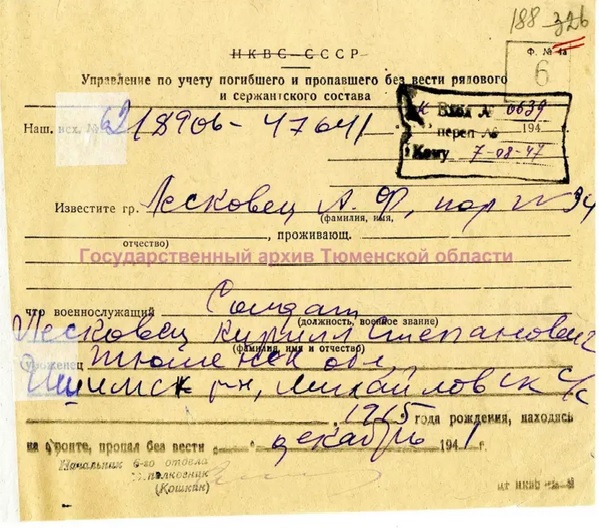 188 326
НКВС СССР
Ф. № 4а
6
Управление по учету погибшего и пропавшего без вести рядового
и сержантского состава
Вход № 0639
перед № 194
Кому 7-08-47
Наш. исх. № 62/8906-47641
Известите гр. Лесковец А. Ф,
(фамилия, имя,
, проживающ.
отчество)
Государственный архив Тюменской области
что военнослужащий Солдат
(должность, военное звание)
Лесковец Кирилл Степанович
(фамилия, имя и отчество)
(уроженец Тюменск обл,
Ишимск р-н, Михайловск с/с
1915 года рождения, находясь
на фронте, пропал без вести декабрь 1941 г.
Начальник 6-го отдела
полковник
(Кошкин)